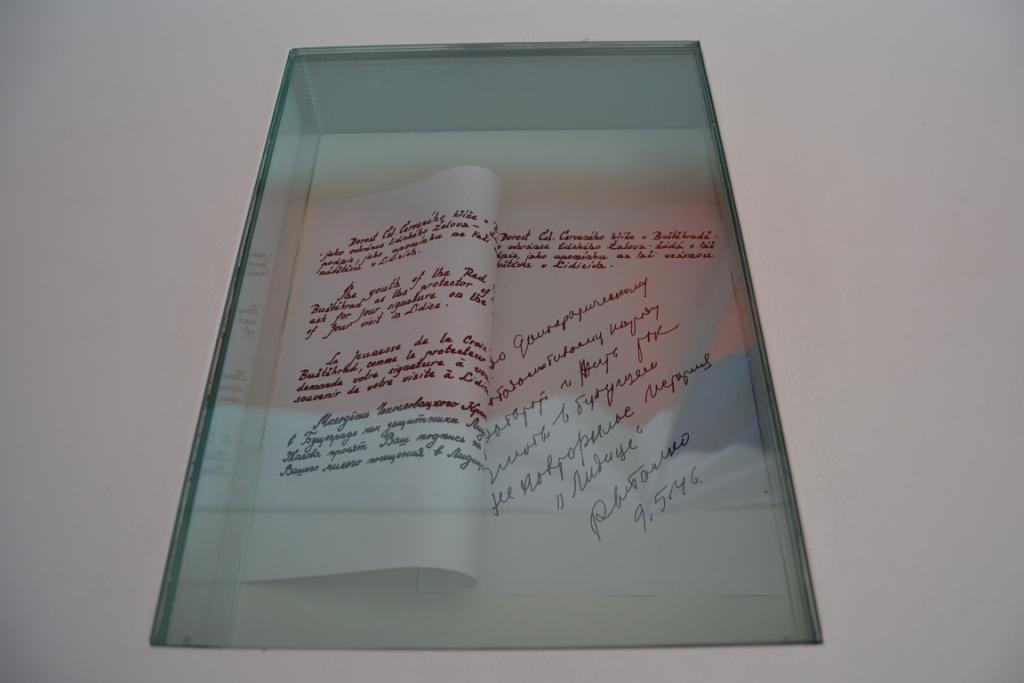 Dorost Čsl. Červeného kříže v
- jako ochránce lidského Žalova -
podpis, jako upomínku na Vaši
návštěvu v Lidicích.
The youth of the Red
Buštěhrad as the protector of
ask for Your signature as the
of Your visit in Lidice.
La jeunesse de la Croix
Buštěhrad, comme le protecteur
demande votre signature à
souvenir de votre visite à Lidi
Молодёжь Чехословацкого Кра
в Буштеграде как защитники
Жалова просят Ваш подпись на
Вашего милого посещения в Лидиц
Dorost Čsl. Červeného kříže v Buštěhradě -
v ochránce lidského Žalova - žádá o Váš
jako upomínku na Vaši vzácnou
v Lidicích.
демократическому
народу
и жить так
чтобы в будущем
не повторилась история
"Лидице"
9.5.46.